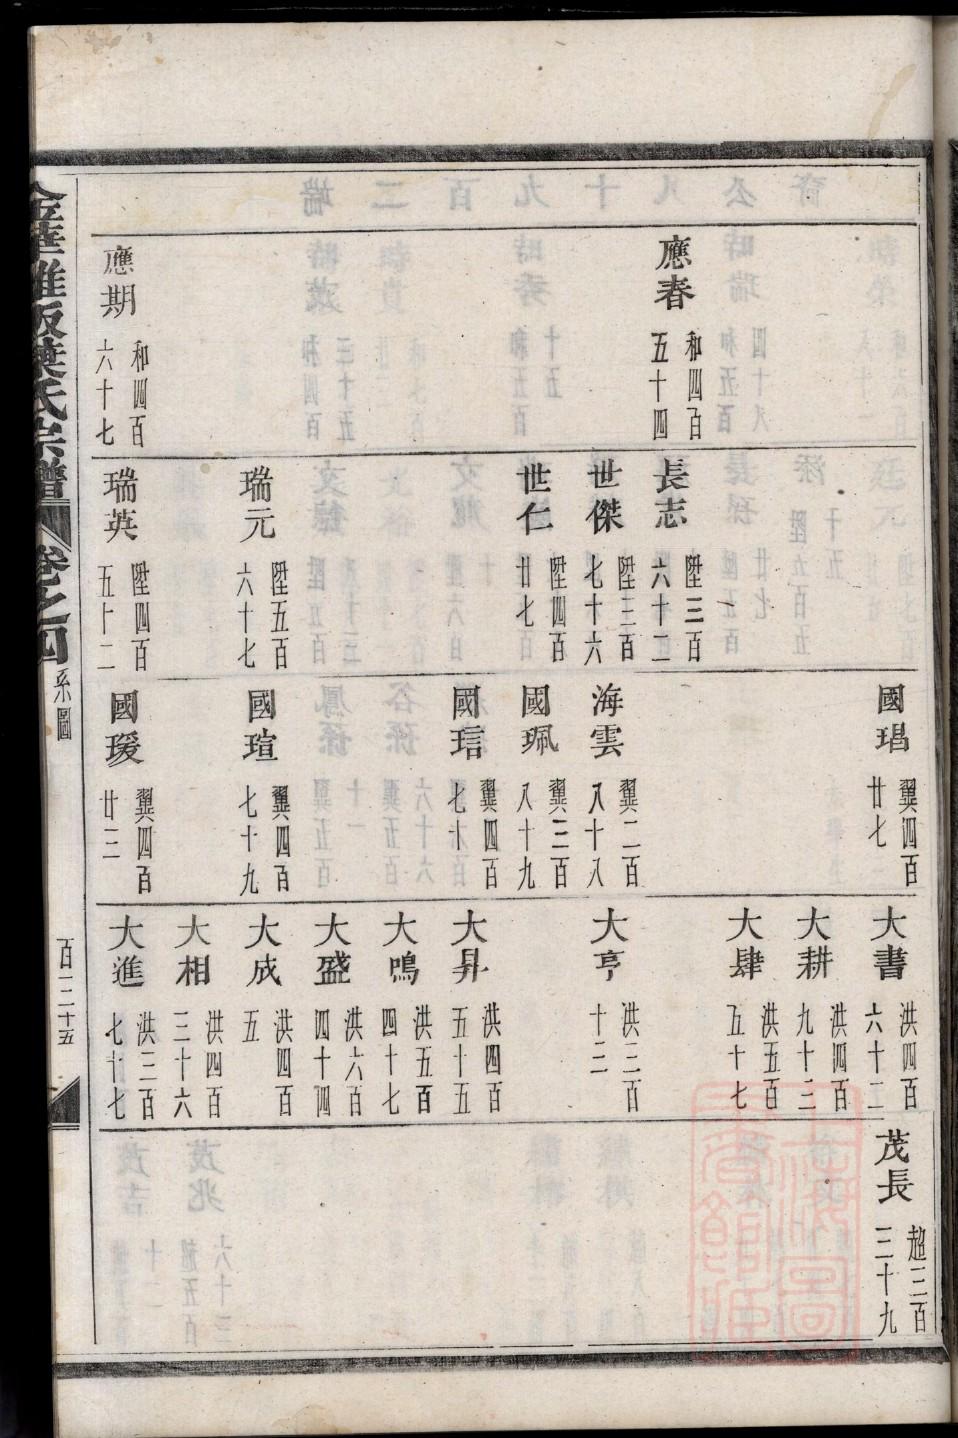 應春 和四百五十四
應期 和四百六十七
長志 陞三百六十二
世傑 陞三百七十六
世仁 陞四百廿七
瑞元 陞五百六十七
瑞英 陞四百五十二
國琩 翼四百廿七
海雲 翼二百八十八
國珮 翼三百八十九
國琂 翼四百七十
國瑄 翼四百七十九
國瑗 翼四百廿三
大書 洪四百六十二
大耕 洪四百九十三
大肆 洪五百五十七
大亨 洪三百十三
大昇 洪四百五十五
大鳴 洪五百四十七
大盛 洪六百四十四
大成 洪四百五
大相 洪四百三十六
大進 洪三百七十七
茂長 超三百三十九
葉氏宗譜 卷之四 系圖 百二十五